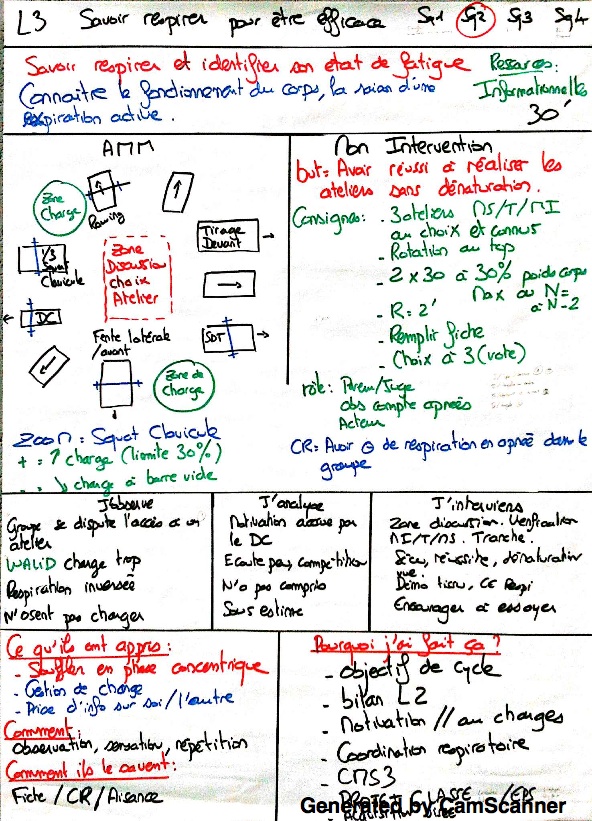 L3 Savoir respirer pour être efficace Sq1 Sq2 Sq3 Sq4
Savoir respirer et identifier son état de fatigue
Connaître le fonctionnement du corps, la d'une
respiration active.
Ressources:
Informationnelles
30'
AMM
Zone
Charge
Rowing
Tirage
Devant
1/3
Squat
Clavicule
Zone
Discussion
choix
Atelier
DC
Fente latérale
/avant
SDT
Zone de
Charge
ZOOM : Squat Clavicule
+ = ↑ charge (limite 30%)
↓ charge à barre vide
Non Intervention
but = Avoir réussi à réaliser les
ateliers sans dénaturation.
Consignes: - 3 ateliers MS/T/MI
au choix et connus
- Rotation au top
- 2 x 30 à 30% poids corps
Max ou N=
à N-2
- R = 2'
- Remplir fiche
- Choix à 3 (vote)
rôle: Pareur/Juge
Obs compte apnées
Acteur
CR: Avoir ⊖ de respiration en apnée dans le
groupe
J'observe
Groupe se dispute l'accès à un
atelier
WALID charge trop
Respiration inversée
N'osent pas charger
J'analyse
Motivation accrue par
le DC
Ecoute peu, compétition
N'a pas compris
Sous estime
J'interviens
Zone discussion. Vérification
MI/T/MS. Tranche.
Sécu, réussite, dénaturation
vue.
Démo tiers, CE Respi
Encourager à essayer
Ce qu'ils ont appris :
- Souffler en phase concentrique
- Gestion de charge
- Prise d'info sur soi/l'autre
Comment:
Observation, sensation, répétition
Comment ils le savent:
Fiche / CR / Aisance
Pourquoi j'ai fait ça ?
- Objectif de cycle
- bilan L2
- Motivation // au charges
- Coordination respiratoire
- CMS3
- PROJET CLASSE /EPS
Generated by CamScanner